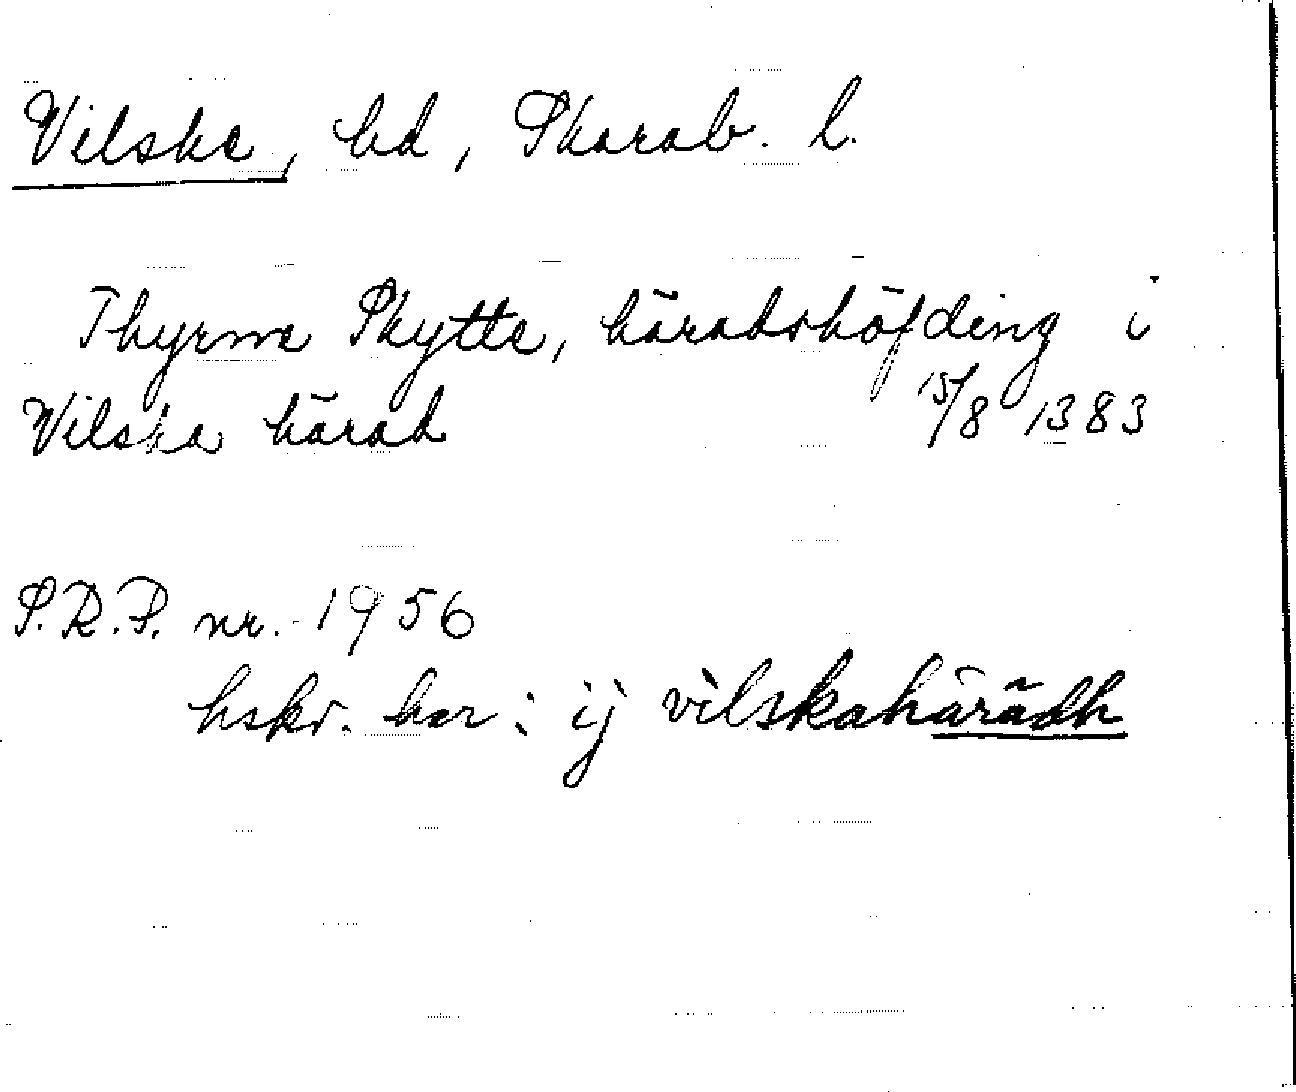 Vilske, hd, Skarab. l.
Thyrne Skytte, häradshöfding i
Vilska härad 15/8 1383
S.R.P. nr. 1956
hskr. har: ij vilskahärädh